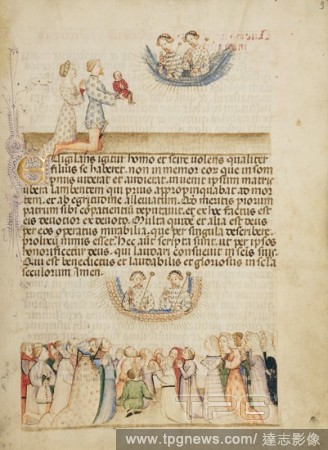 Vigilans igitur homo et scire volens qualiter
filius se haberet. non in memor eor que in som
pnis viderat et audierat. invenit ipsum matris
ubera lambentem qui prius appropinquabat ad mor
tem. et ab egritudine alleviatum. meritis piorum
patrum sibi reputavit. et ex hoc factus est
eis devotior ex devoto. Multa et alia est deus
per eos operatus mirabilia, que per singula describere
prolixum nimis esset. Hec aut scripta sunt. ut per ipsos
honorificetur deus. qui laudari consuevit in scis suis.
Qui est benedictus et laudabilis et gloriosus in scla
seculorum Amen.
TPG
www.tpgnews.com / 達志影像